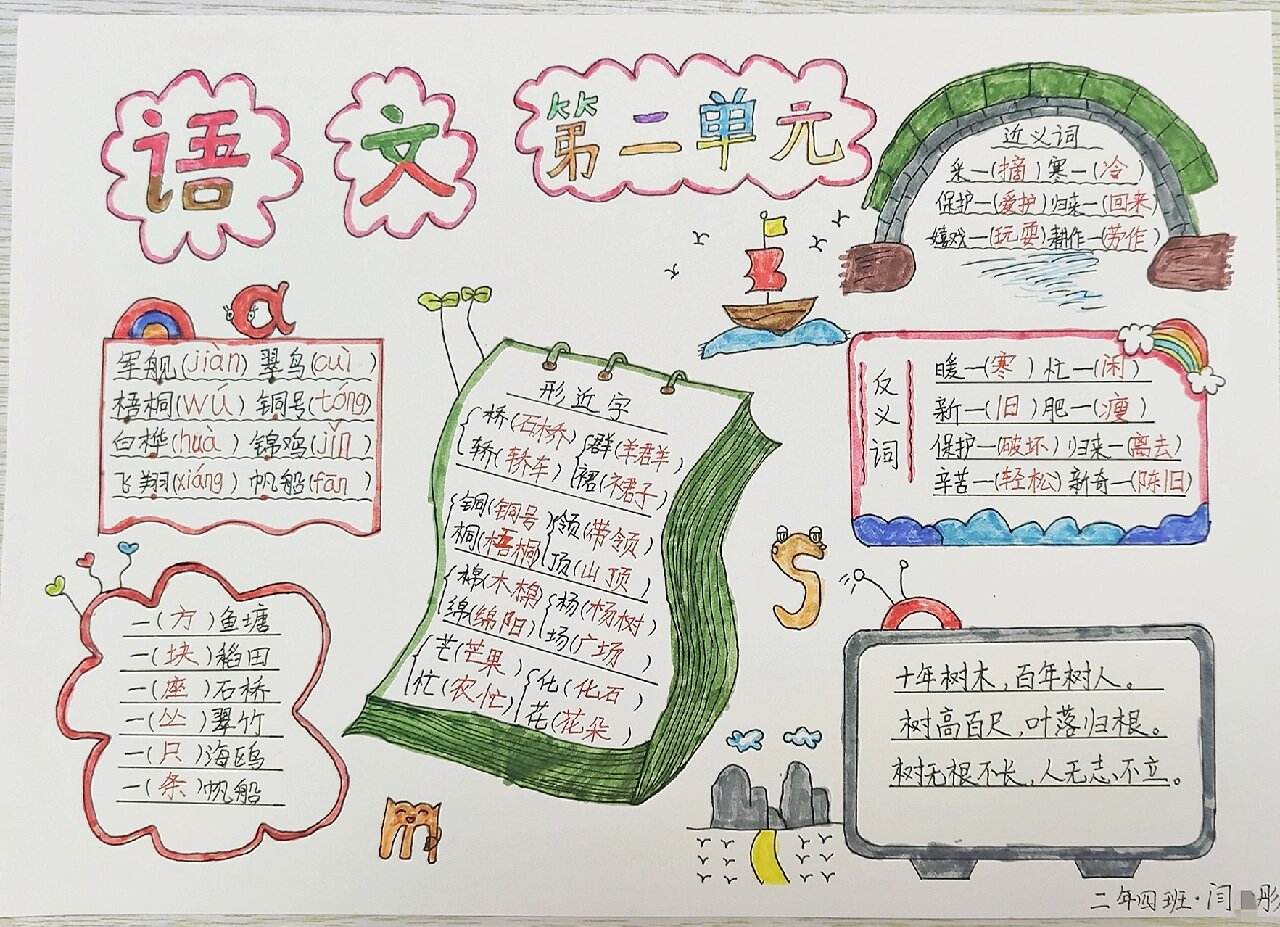 语文 第二单元
近义词
采—(摘) 寒—(冷)
保护—(爱护) 归来—(回来)
嬉戏—(玩耍) 耕作—(劳作)
军舰(jiàn) 翠鸟(cuì)
梧桐(wú) 铜号(tóng)
白桦(huà) 锦鸡(jǐn)
飞翔(xiáng) 帆船(fān)
形近字
桥(石桥) 群(羊群)
轿(轿车) 裙(裙子)
铜(铜号) 领(带领)
桐(梧桐) 顶(山顶)
棉(木棉) 杨(杨树)
绵(绵阳) 场(广场)
芒(芒果) 化(化石)
忙(农忙) 花(花朵)
反义词
暖—(寒) 忙—(闲)
新—(旧) 肥—(瘦)
保护—(破坏) 归来—(离去)
辛苦—(轻松) 新奇—(陈旧)
一(方)鱼塘
一(块)稻田
一(座)石桥
一(丛)翠竹
一(只)海鸥
一(条)帆船
十年树木,百年树人。
树高百尺,叶落归根。
树无根不长,人无志不立。
二年四班·闫 彤